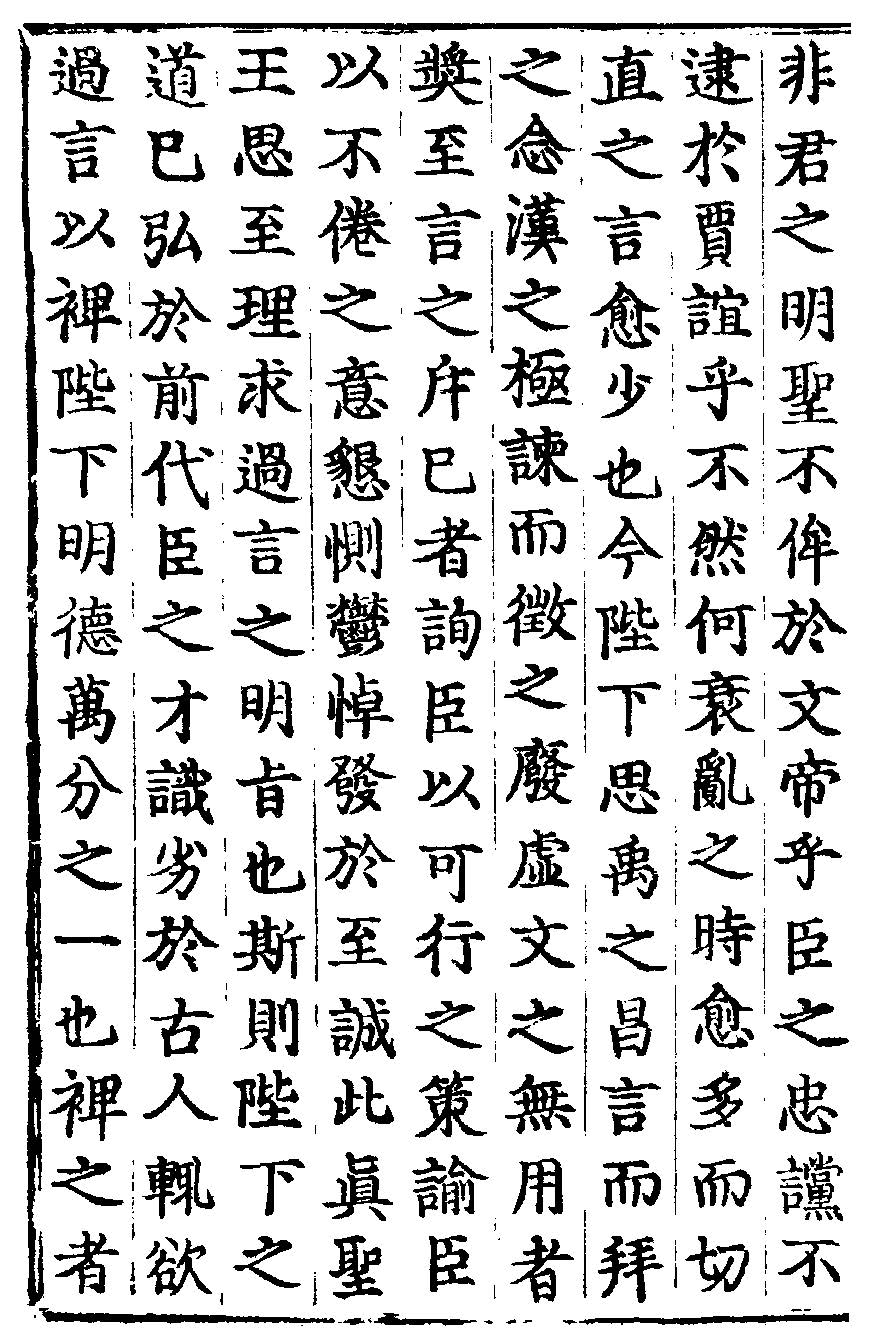 非君之明聖不侔於文帝乎臣之忠讜不
逮於賈誼乎不然何衰亂之時愈多而切
直之言愈少也今陛下思禹之昌言而拜
之念漢之極諫而徵之廢虛文之無用者
奬至言之斥已者詢臣以可行之策諭臣
以不倦之意懇惻鬱悼發於至誠此眞聖
王思至理求過言之明旨也斯則陛下之
道已弘於前代臣之才識劣於古人輒欲
過言以裨陛下明德萬分之一也裨之者